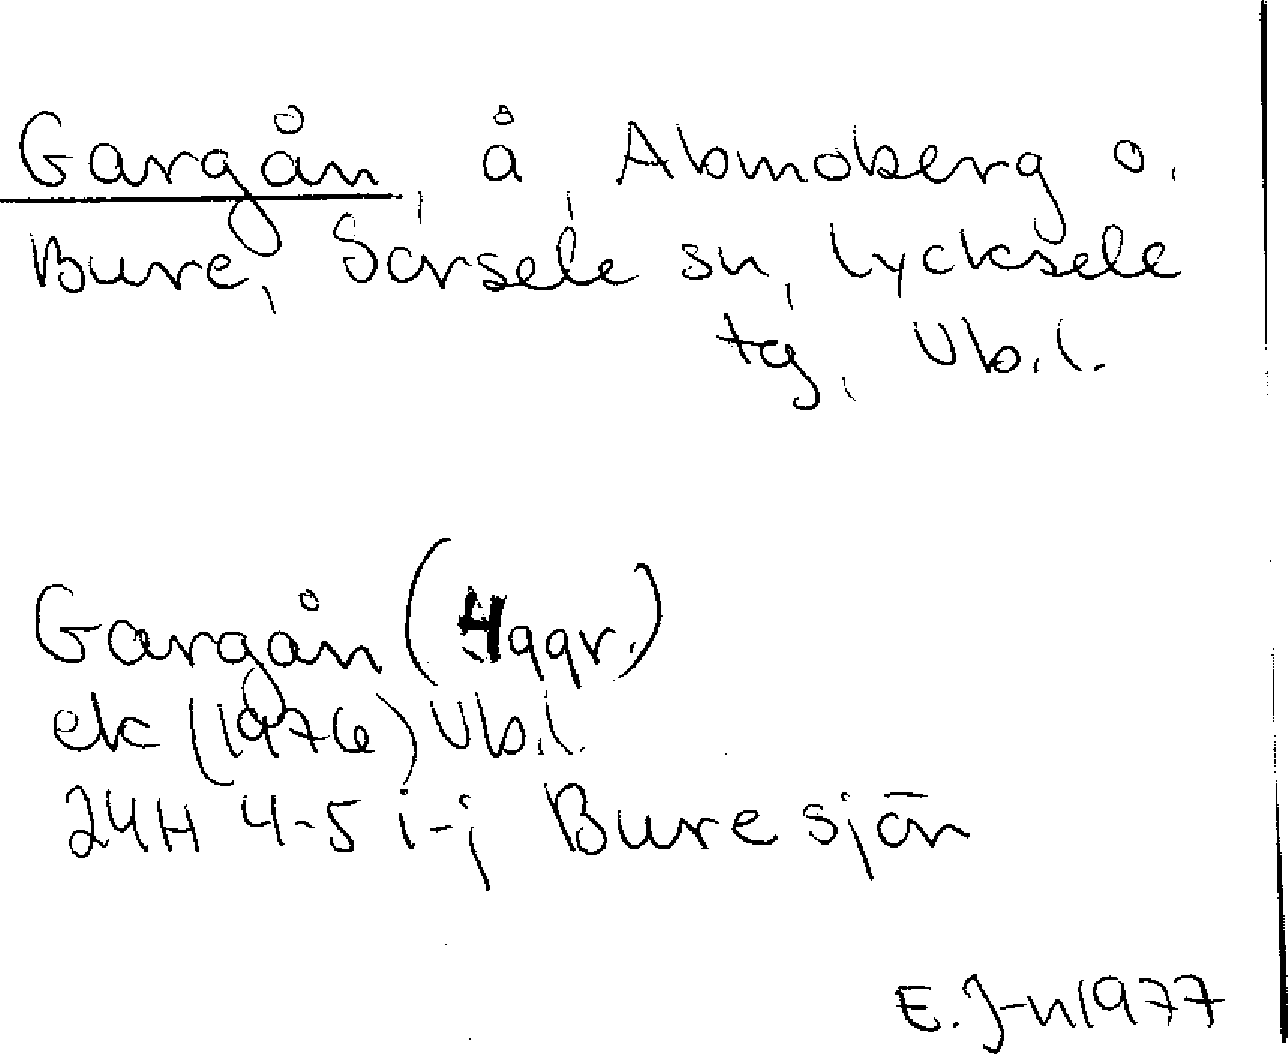 Gargån, å, Abmoberg o.
Bure, Sorsele sn, Lycksele
tg, Vb.l.
Gargån (4 ggr.)
ek (1976) Vb.l.
24H 4-5 i-j Buresjön
E. J-n 1977